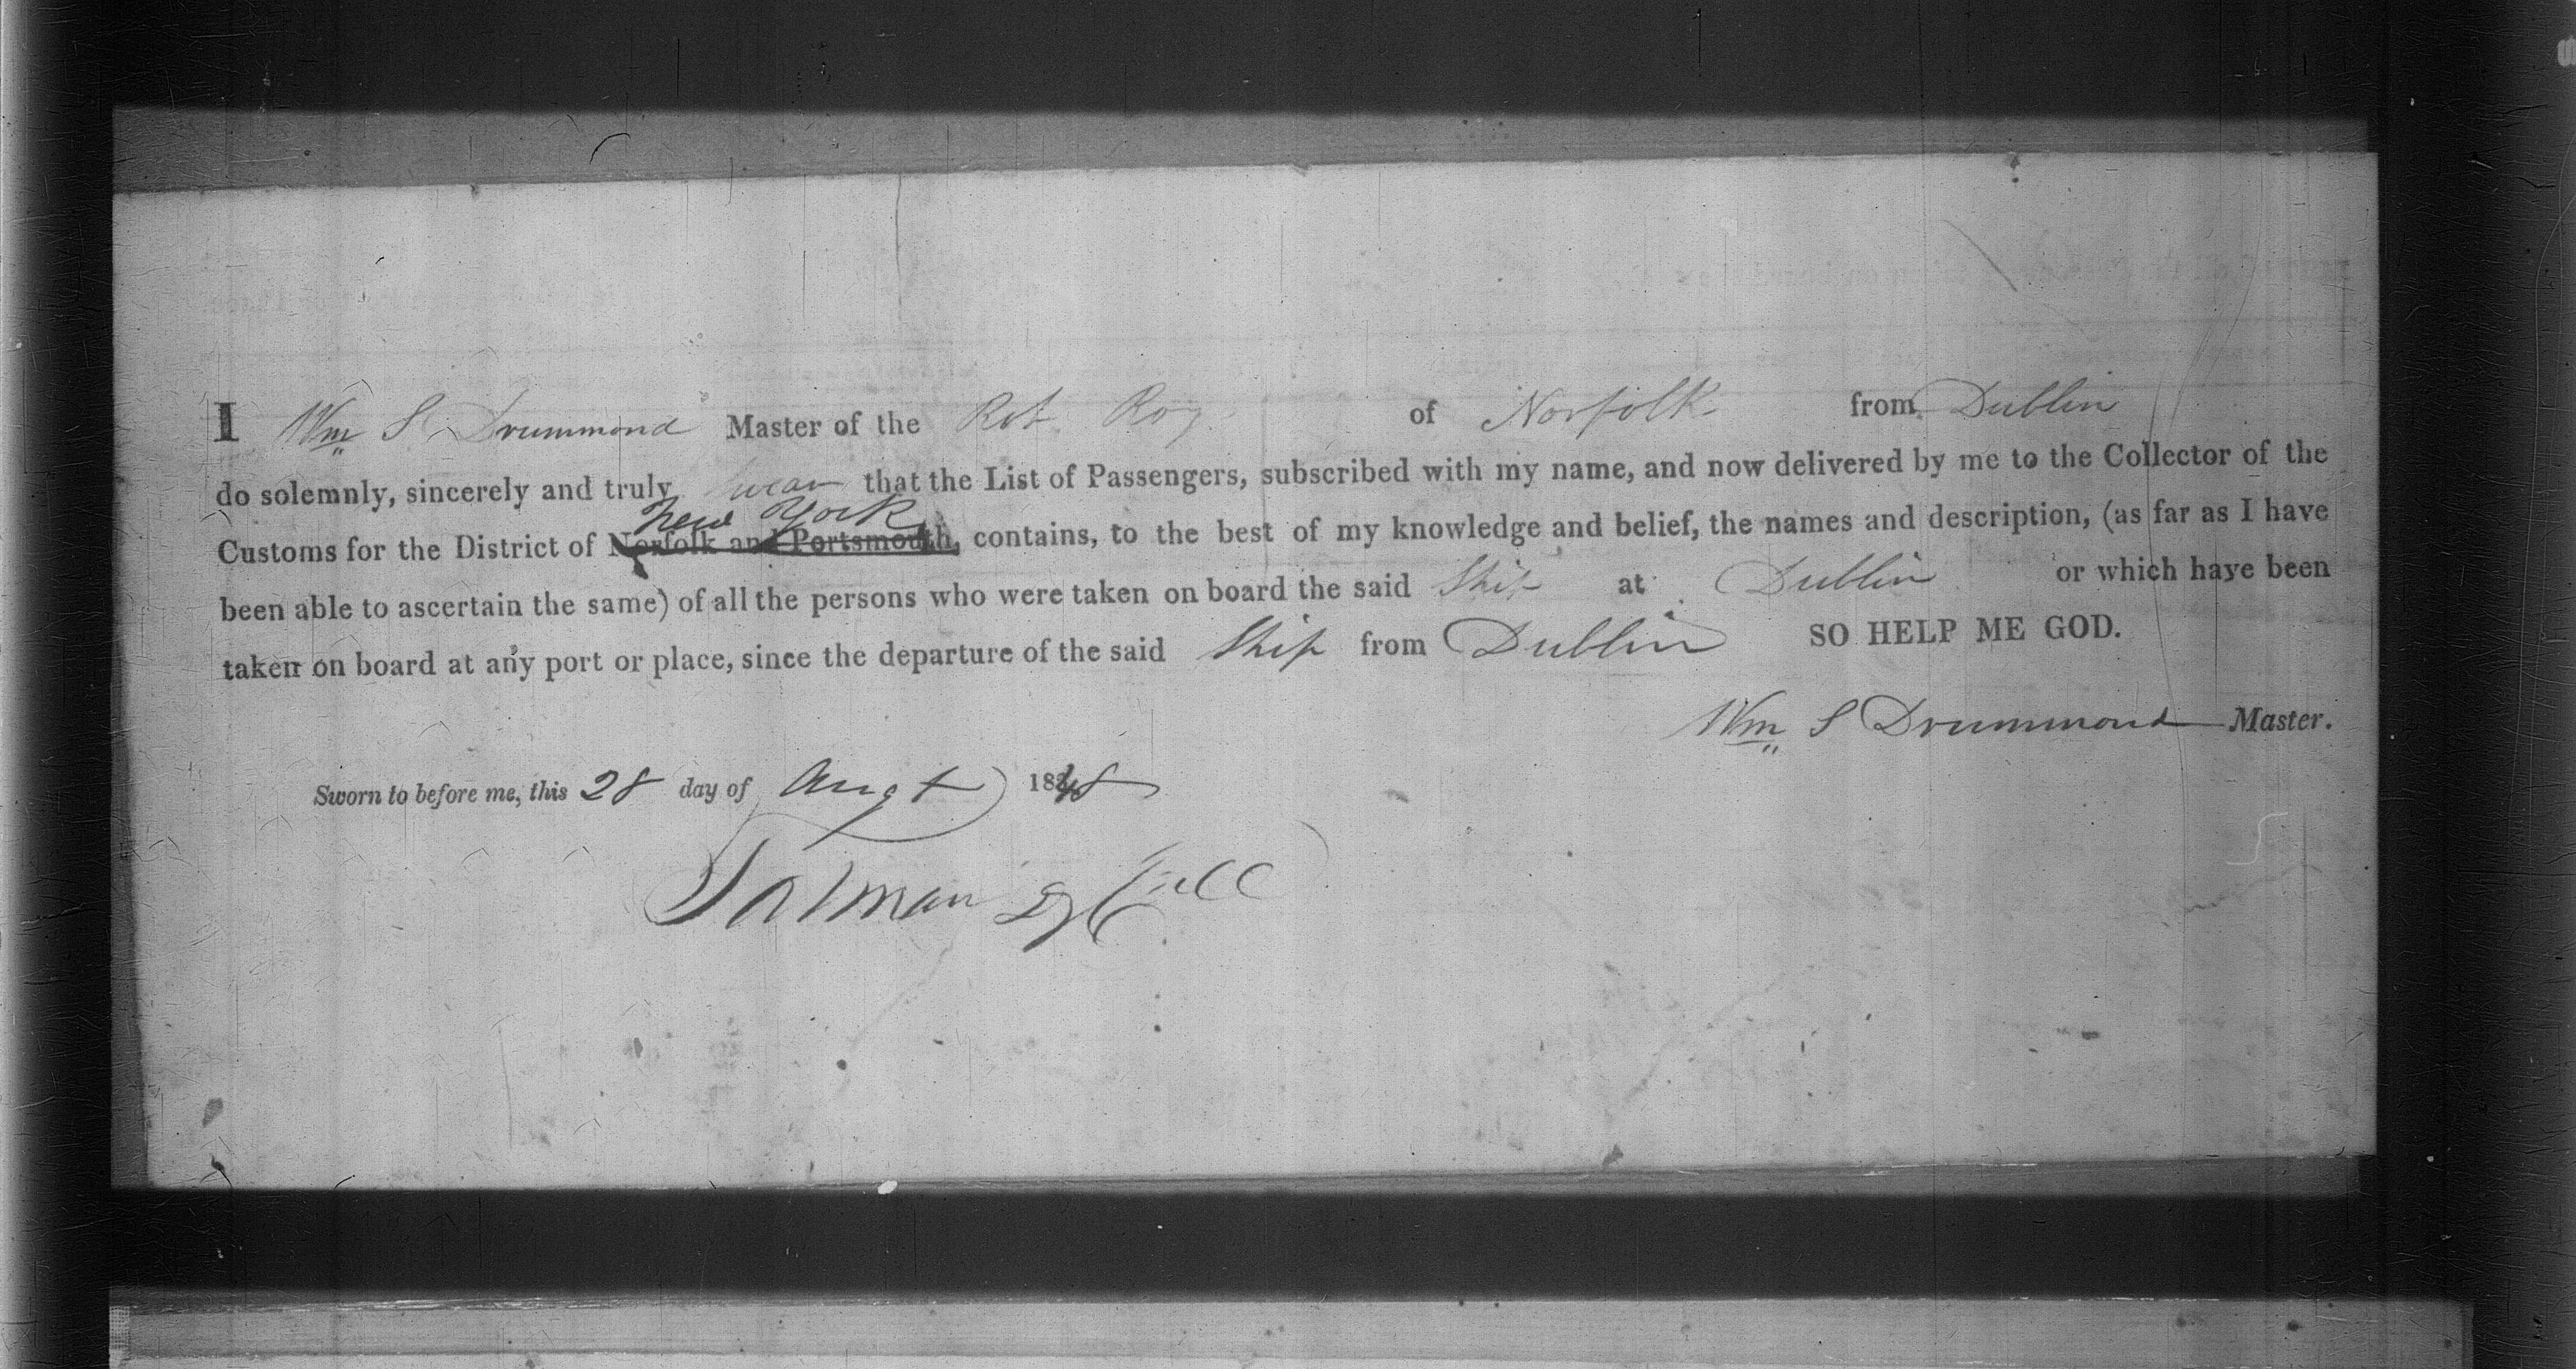 I Wm S Drummond Master of the Rob Roy of Norfolk from Dublin
do solemnly, sincerely and truly swear that the List of Passengers, subscribed with my name, and now delivered by me to the Collector of the
New York
Customs for the District of Norfolk and Portsmouth, contains, to the best of my knowledge and belief, the names and description, (as far as I have
been able to ascertain the same) of all the persons who were taken on board the said Ship at Dublin or which have been
taken on board at any port or place, since the departure of the said Ship from Dublin SO HELP ME GOD.
Wm S Drummond Master.
Sworn to before me, this 28 day of Augt 1848
Talman Dy Coll